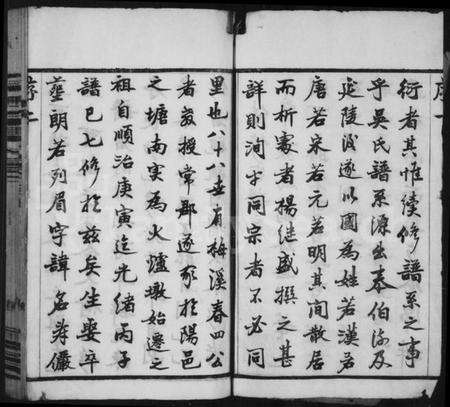 序一
衍者其惟續修譜系之事
乎吳氏譜系源出泰伯洎及
延陵後遂以國為姓若漢若
唐若宋若元若明其間散居
而析處者楊继盛撰之甚
詳則洵乎同宗者不必同
里也八十八世有梅溪春四公
者教授常郡遂家於陽邑
之塘南实為火爐墩始遷之
祖自順治庚寅迄光緒丙子
譜已七修於兹矣生娶卒
塟朗若列眉字諱名号儼
序二